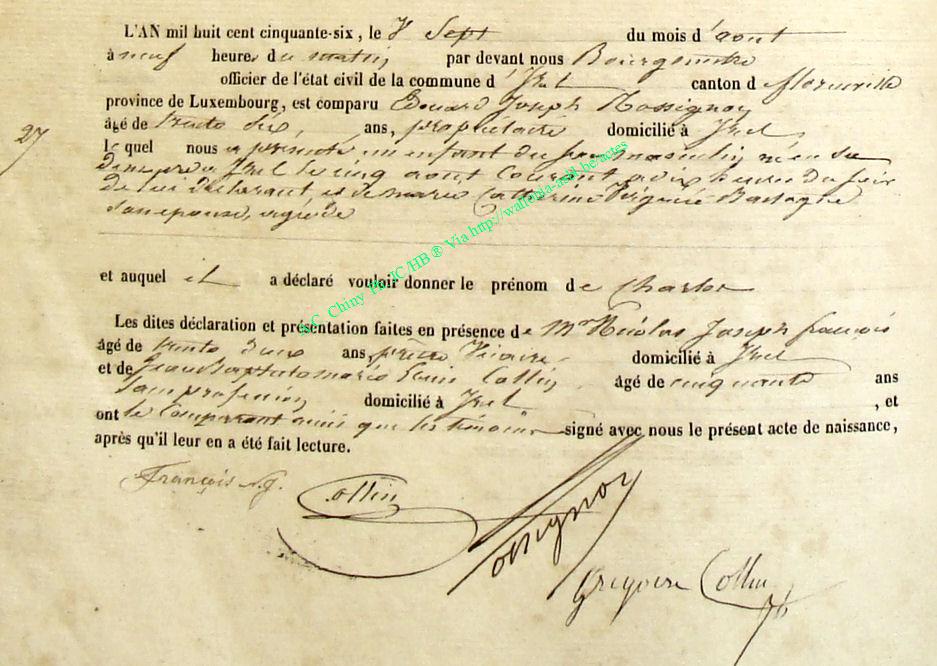 L'AN mil huit cent cinquante-six, le sept du mois d'aout
à neuf heures du matin par devant nous Bourgmestre
officier de l'état civil de la commune d'Izel canton de florenville
province de Luxembourg, est comparu Edouard Joseph Rossignon
27
âgé de trente six, ans, propriétaire domicilié à Izel
le quel nous a presenté un enfant du sexe masculin né en sa
demeure Izel le cinq aout courant a dix heures du soir
de lui declarant et de marie Catherine Virginie Bastogne
son epouse, agée de
et auquel il a déclaré vouloir donner le prénom de Charles
Les dites déclaration et présentation faites en présence de Mr Nicolas Joseph françois
âgé de trente deux ans, prêtre Vicaire domicilié à Izel
et de Jean Baptiste marie Collin âgé de cinquante ans
sans profession domicilié à Izel , et
ont le comparant ainsi que les témoins signé avec nous le présent acte de naissance,
après qu'il leur en a été fait lecture.
François N.J. Collin Rossignon
Gregoire Collin
S.C. Chiny Ph JC /HB ® Via http://wallonia-asbl.be/actes